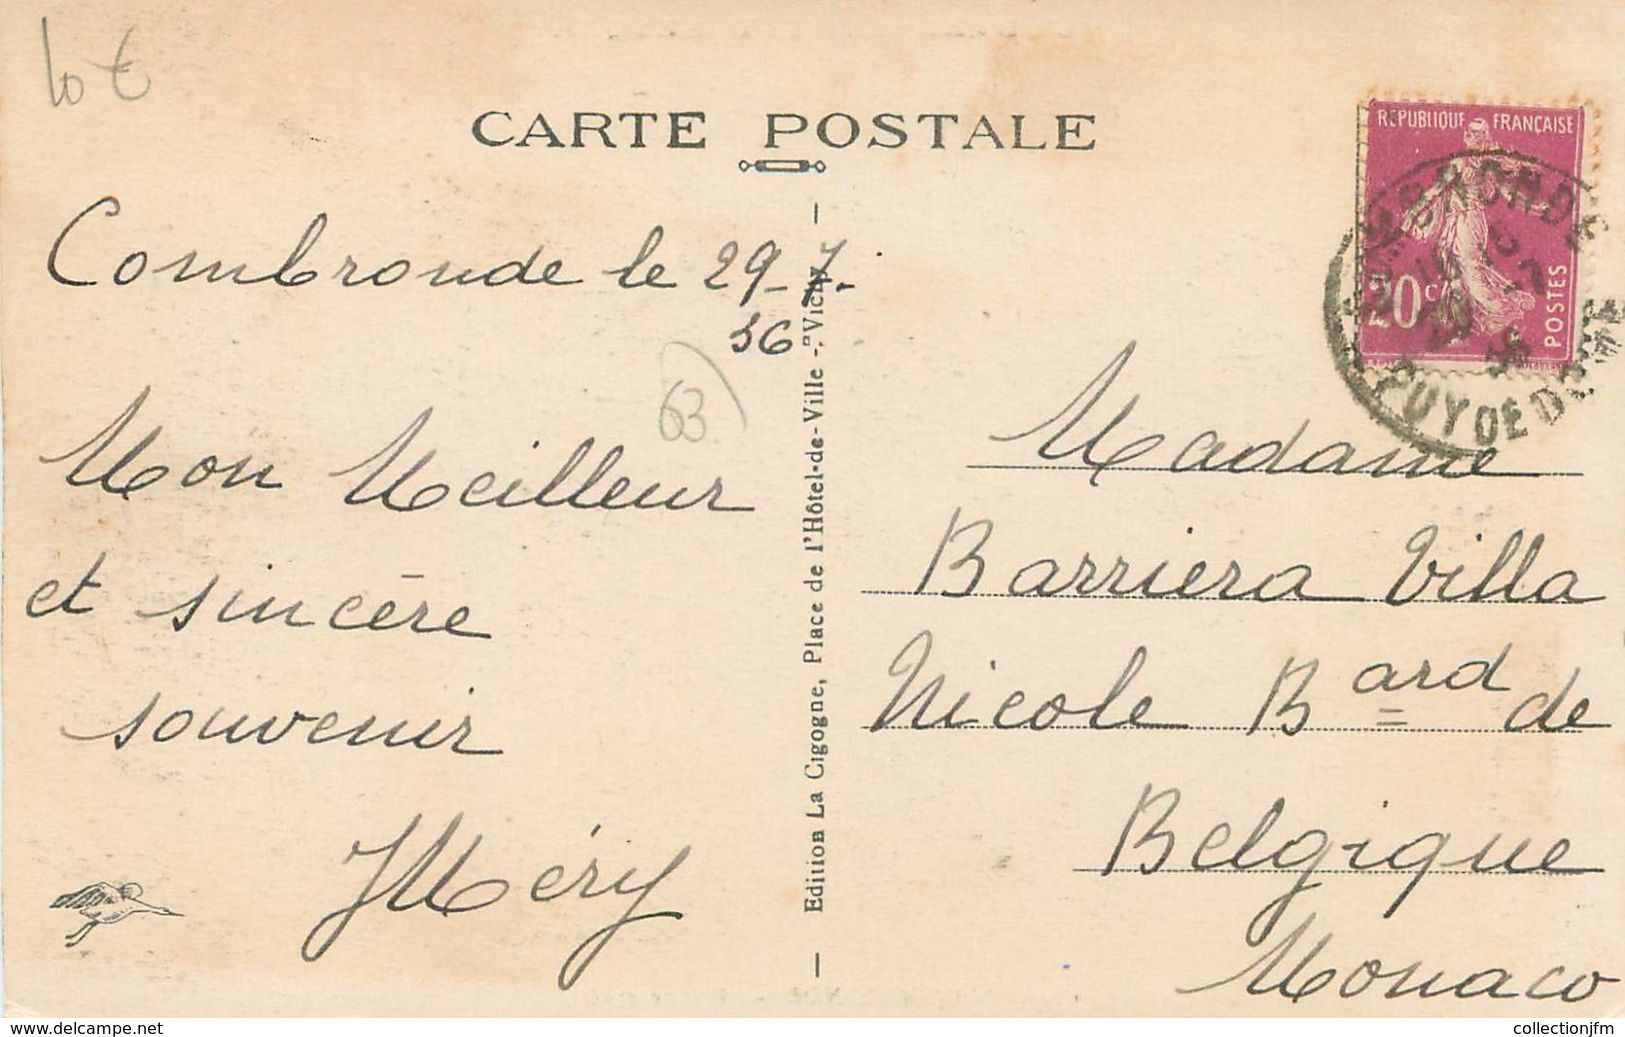 10 €
CARTE POSTALE
REPUBLIQUE FRANÇAISE
20 c
POSTES
COMBRONDE
PUY DE DOME
Combronde le 29-7-
36
63
Mon Meilleur
et sincère
souvenir
JMéry
Edition La Cigogne, Place de l'Hôtel-de-Ville - Vichy
Madame
Barriera Villa
Nicole Bard de
Belgique
Monaco
www.delcampe.net
collectionjfm